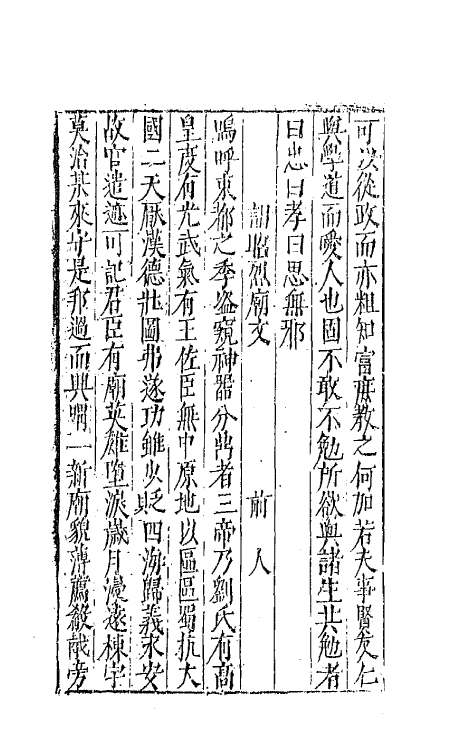 可以從政而亦粗知富庶教之何加若夫事賢友仁
與學道而愛人也固不敢不勉所欲與諸生共勉者
曰忠曰孝曰思無邪
謁昭烈廟文　前人
嗚呼東都之季盗窺神器分鼎者三帝乃劉氏有高
皇度有光武氣有王佐臣無中原地以區區蜀抗大
國二天厭漢德壯圖弗遂功雖少貶四海歸義永安
故宫遺迹可記君臣有廟英雄墮淚歲月漫遠棟宇
莫治某來守是邦過而興喟一新廟貌薄薦殽胾旁